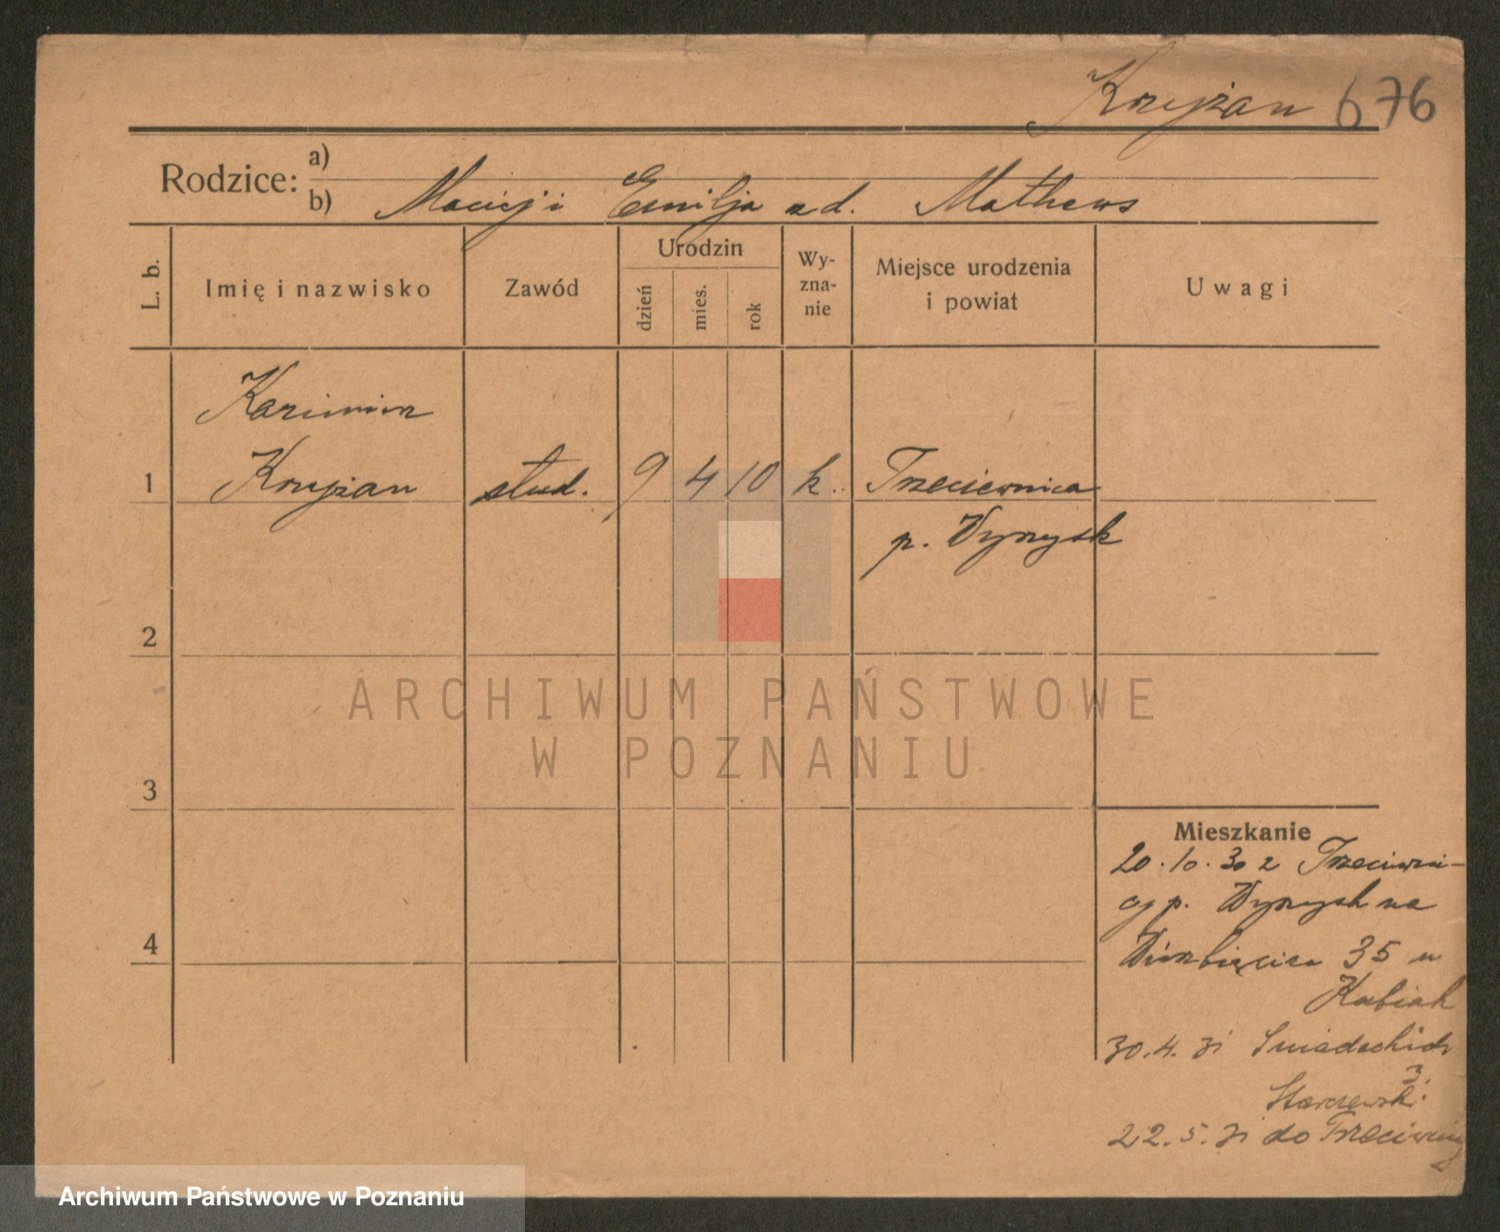 Krzyżan 676
Rodzice: a)
b) Maciej i Emilja ud. Mathews
L. b.
Imię i nazwisko
Zawód
Urodzin
dzień
mies.
rok
Wy-
zna-
nie
Miejsce urodzenia
i powiat
Uwagi
Kazimierz
1 Krzyżan stud. 9 4 10 k. Trzeciewnica
p. Wyrzysk
2
3
4
Mieszkanie
20.10.30 z Trzeciewni-
cy p. Wyrzysk na
Wierzbięcice 35 m
Kubiak
30.4.31 Śniadeckich
3.
Starczewski
22.5.31 do Trzeciewnicy
ARCHIWUM PAŃSTWOWE
W POZNANIU
Archiwum Państwowe w Poznaniu